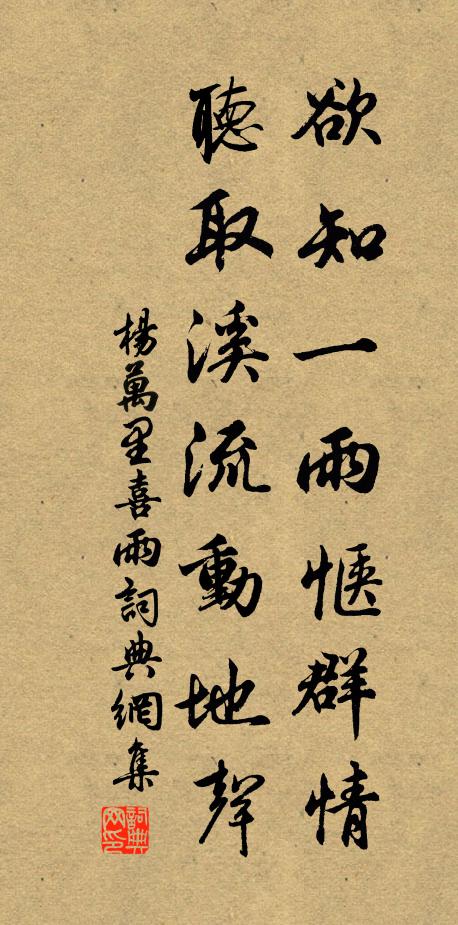 欲知一雨惬群情
聽取溪流動地聲
楊萬里喜雨詞典網集
詞典網印